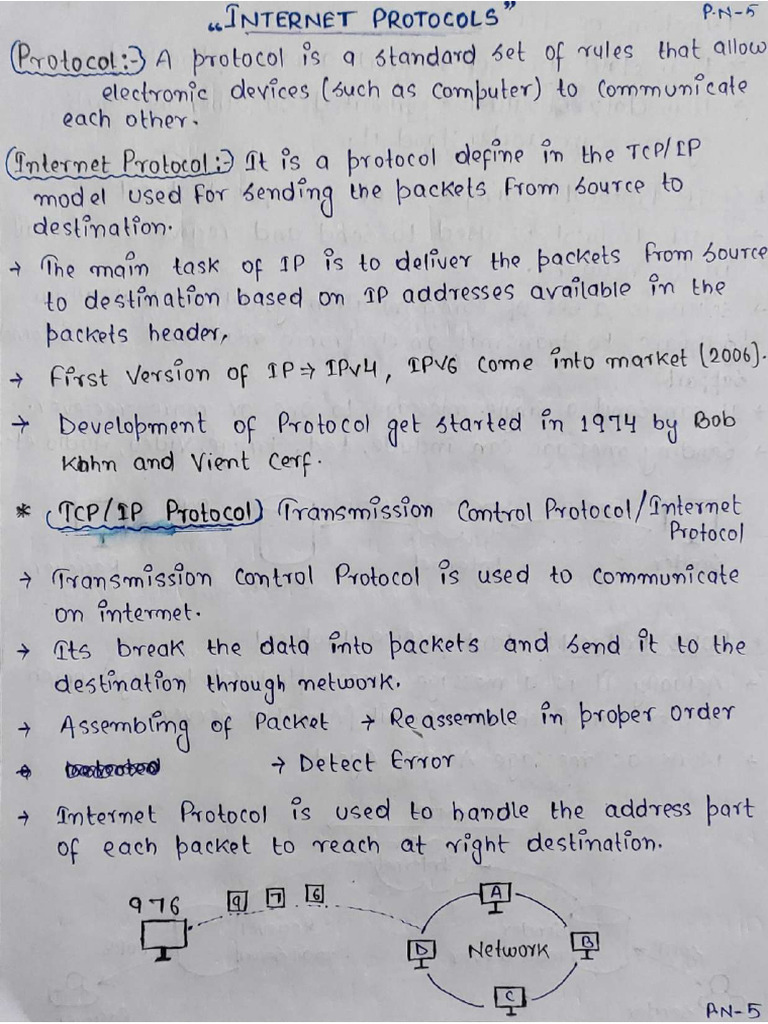 "INTERNET PROTOCOLS" P.N-5
(Protocol:-) A protocol is a standard set of rules that allow
electronic devices (such as computer) to communicate
each other.
(Internet Protocol:-) It is a protocol define in the TCP/IP
model used for sending the packets from source to
destination.
→ The main task of IP is to deliver the packets from source
to destination based on IP addresses available in the
packets header,
→ First Version of IP ⇒ IPv4, IPV6 come into market (2006).
→ Development of Protocol get started in 1974 by Bob
Kohn and Vient Cerf.
* (TCP/IP Protocol) Transmission Control Protocol/Internet
Protocol
→ Transmission Control Protocol is used to communicate
on internet.
→ Its break the data into packets and send it to the
destination through network.
→ Assembling of Packet → Reassemble in proper order
→ → Detect Error
→ Internet Protocol is used to handle the address part
of each packet to reach at right destination.
976 9 7 6 A
D Network B
C
PN-5